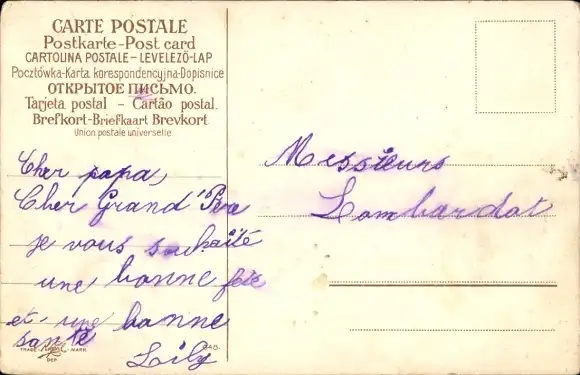 CARTE POSTALE
Postkarte-Post card
CARTOLINA POSTALE-LEVELEZŐ-LAP
Pocztówka-Karta korespondencyjna-Dopisnice
ОТКРЫТОЕ ПИСЬМО.
Tarjeta postal - Cartão postal.
Brefkort-Briefkaart Brevkort
Union postale universelle
Cher papa,
Cher Grand'Père
je vous souhaite
une bonne fête
et une bonne
santé
Lily
TRADE MARK
DEP.
Messieurs
Lombardot